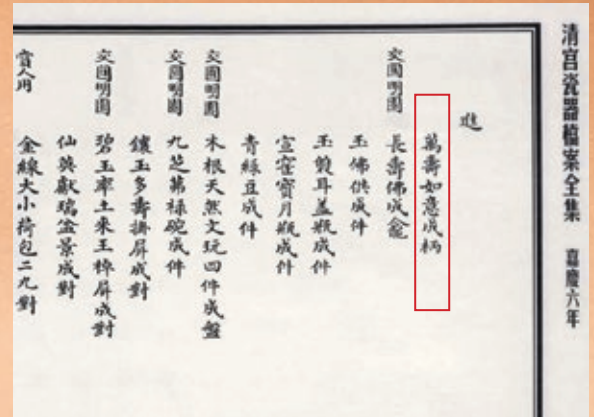 清宮瓷器檔案全集 嘉慶六年
進
萬壽如意成柄
交圓明園 長壽佛成龕
玉佛供成件
玉雙耳蓋瓶成件
宣窑寶月瓶成件
青綠豆成件
交圓明園 木根天然文玩四件成盤
交圓明園 九芝茀祿碗成件
鑲玉多壽掛屏成對
交圓明園 碧玉率土來王掉屏成對
仙英獻瑞盆景成對
賞人用 金線大小荷包二九對